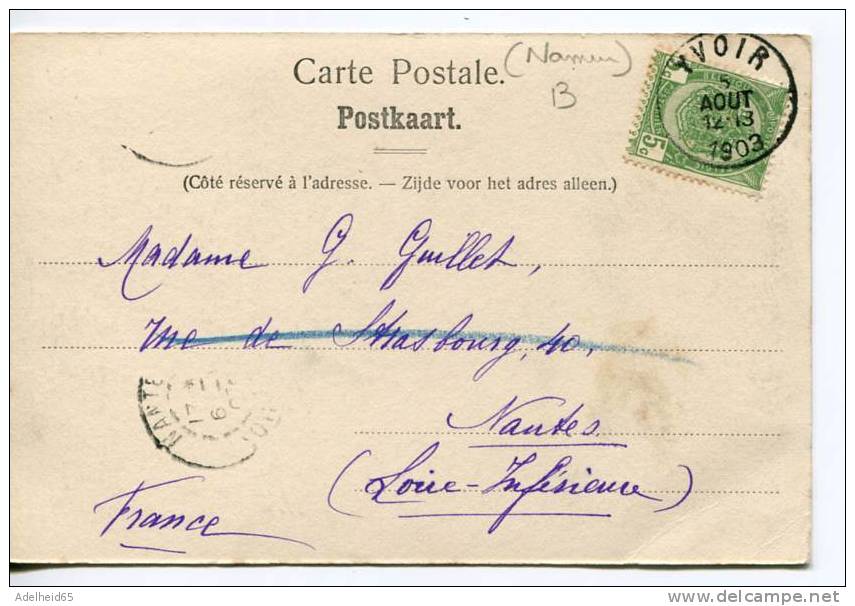 Carte Postale.
(Namur)
B
Postkaart.
(Côté réservé à l'adresse. — Zijde voor het adres alleen.)
YVOIR
5
AOUT
12-13
1903
5c
Madame G. Guillet,
rue de Strasbourg, 40,
Nantes
(Loire-Inférieure)
France
NANTE
17
6
Adelheid65
delcampe.net